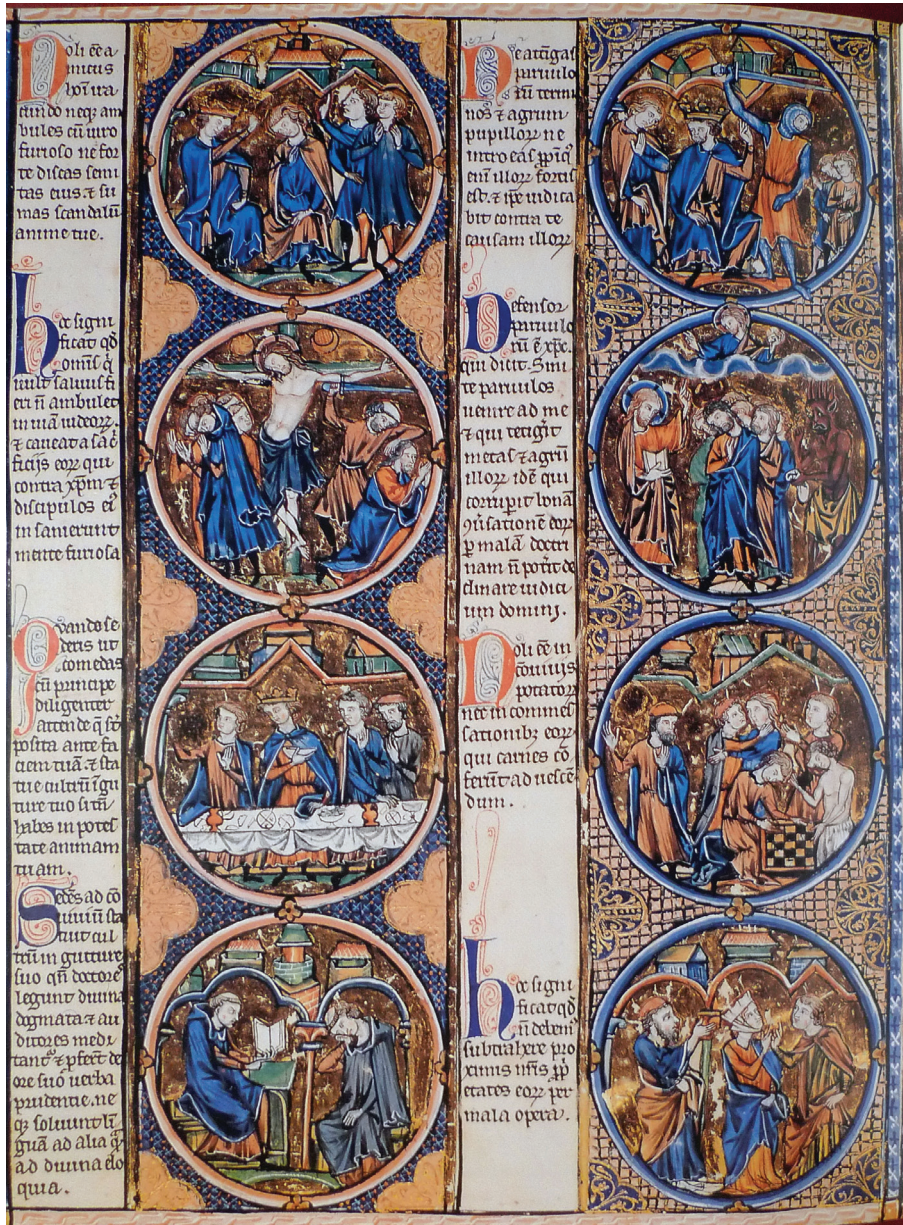 Noli eē a
micus
hoī ira
cundo neqȝ am
bules cū uiro
furioso ne for
te discas semi
tas eius ⁊ su
mas scandalū
anime tue.
hoc signi
ficat qđ
omīs q̇
uult saluus f
eri n̄ ambulet
in uia iudeoꝝ
⁊ caueat a sac̄
ficijs eoꝝ qui
contra xp̄m ⁊
discipulos ei᾽
insanierunt
mente furiosa
Quando se
deris ut
comedas
cū principe
diligenter
attende q̄ st̄
posita ante fa
ciem tuā ⁊ sta
tue cultrū ī gut
ture tuo si tn̄
habes in potes
tate animam
tuam.
Sedēs ad cō
uiuiū sta
tuit cul
trum in gutture
suo qn̄ doctores
legunt diuina
dogmata ⁊ au
ditores medi
tant᾽ ⁊ ꝓferūt de
ore suo uerba
prudentie. nec
soluunt lī
guā ad alia q̄
ad diuina elo
quia.
Ne attingas
paruulo
rū termi
nos ⁊ agrum
pupilloꝝ ne
introeas ꝓpīq
enī illoꝝ fortis
est. ⁊ ip̄e iudica
bit contra te
causam illoꝝ
Defensor
paruulo
rum est xp̄c
qui dicit. Sini
te paruulos
uenire ad me
⁊ qui tetigit
metas ⁊ agrū
illoꝝ id ē qui
corrūpit bonā
ꝯuersationē eoꝝ
ꝑ malā doctri
nam n̄ poterit de
clinare iudici
um domini.
Noli eē ī
conuiuijs
potatoꝝ
nec in comes
sationibȝ eoꝝ
qui carnes cō
ferūt ad uescē
dum.
hoc signi
ficat qđ
n̄ debem᾽
subtrahere pro
ximis n̄ris ꝓp
rietates eoꝝ ꝓpt̄
mala opera.